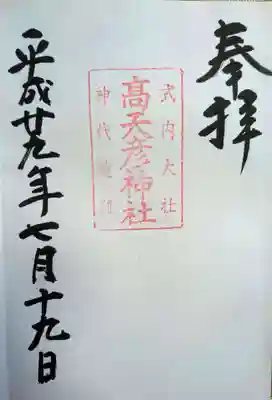 奉拝
式内大社
高天彦神社
神代
平成廿九年七月十九日